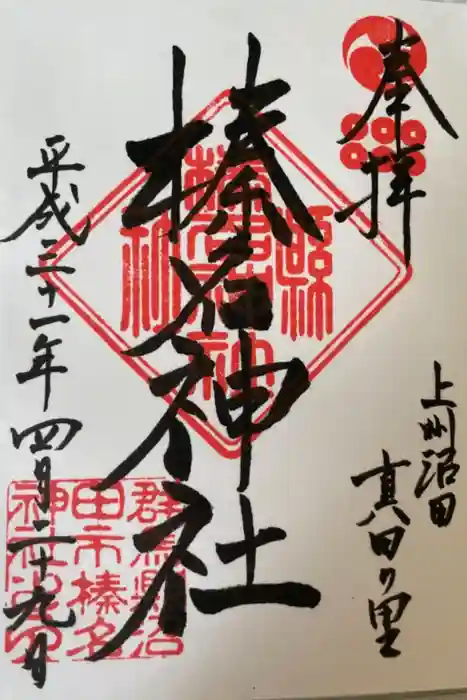 奉拝
上州沼田
真田の里
榛名神社
平成三十一年四月二十九日
群馬縣沼
田市榛名
神社之印